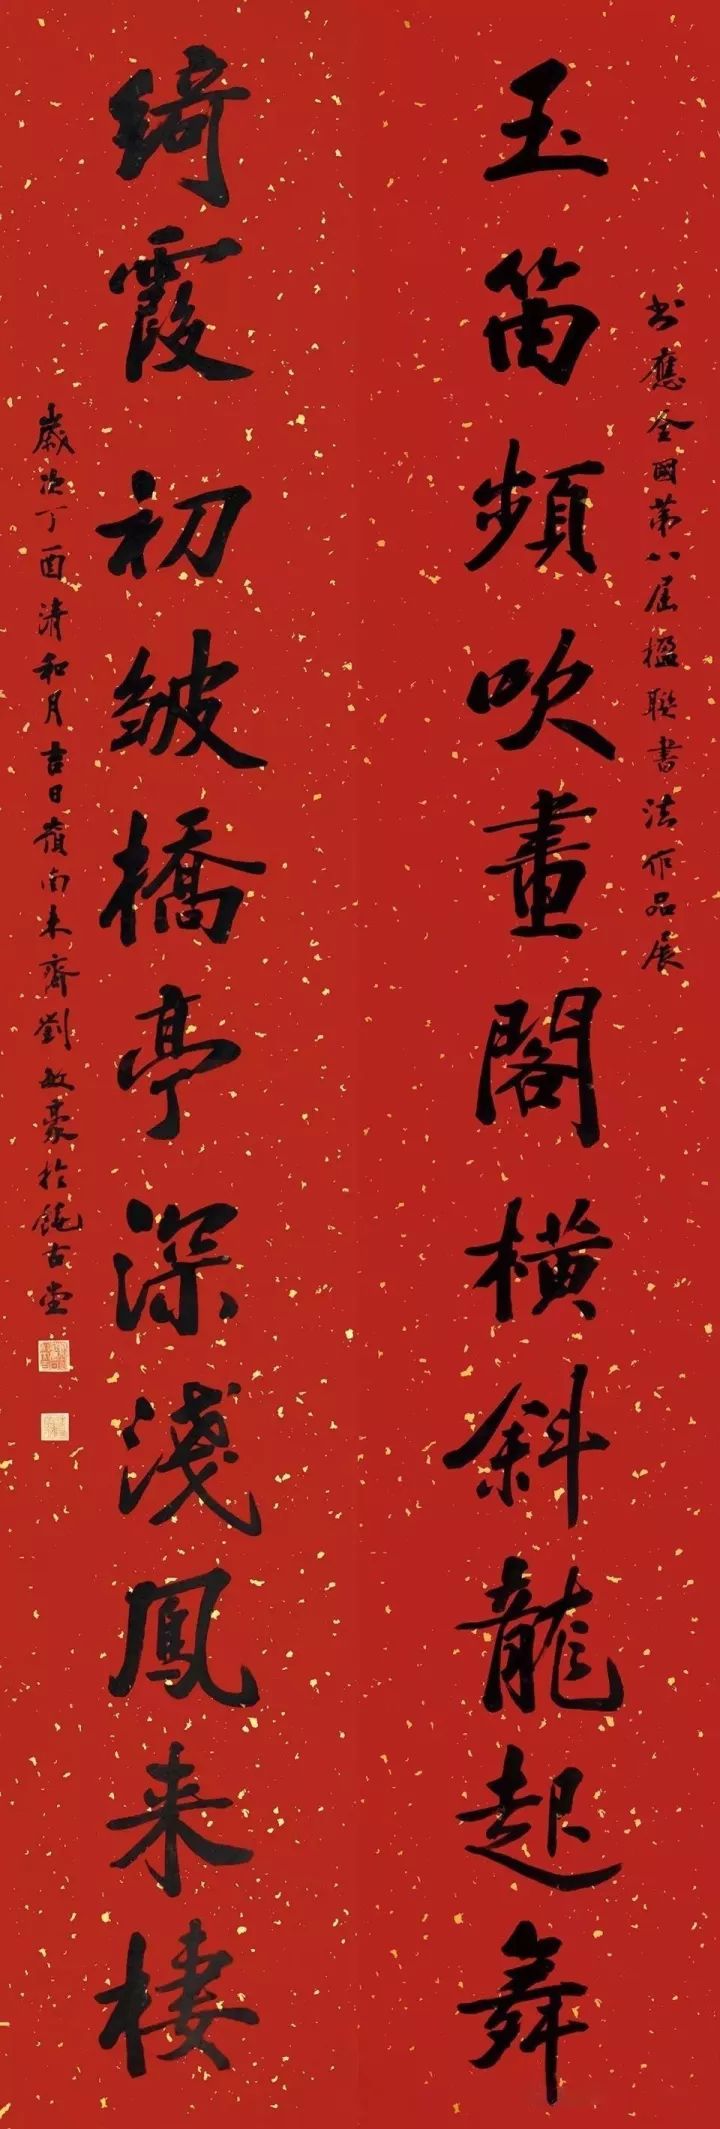 书應全國第八屆楹聯書法作品展
玉笛頻吹畫閣橫斜龍起舞
綺霞初紴橋亭深淺鳳来棲
歲次丁酉清和月吉日嶺南木齋劉豪於饒古堂